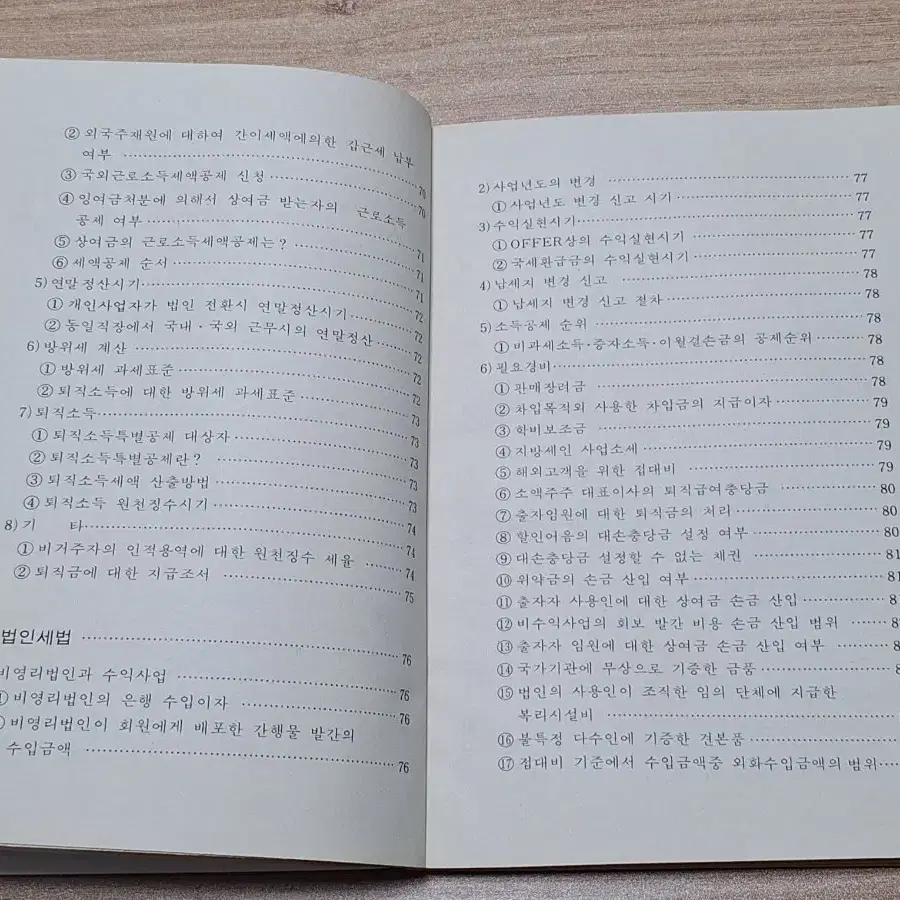 ② 외국주재원에 대하여 간이세액에의한 갑근세 납부
여부 70
③ 국외근로소득세액공제 신청 70
④ 잉여금처분에 의해서 상여금 받는자의 근로소득
공제 여부 71
⑤ 상여금의 근로소득세액공제는? 71
⑥ 세액공제 순서 71
5) 연말정산시기 72
① 개인사업자가 법인 전환시 연말정산시기 72
② 동일직장에서 국내·국외 근무시의 연말정산 72
6) 방위세 계산 72
① 방위세 과세표준 72
② 퇴직소득에 대한 방위세 과세표준 72
7) 퇴직소득 73
① 퇴직소득특별공제 대상자 73
② 퇴직소득특별공제란? 73
③ 퇴직소득세액 산출방법 73
④ 퇴직소득 원천징수시기 73
8) 기 타 74
① 비거주자의 인적용역에 대한 원천징수 세율 74
② 퇴직금에 대한 지급조서 75
법인세법 76
비영리법인과 수익사업 76
비영리법인의 은행 수입이자 76
비영리법인이 회원에게 배포한 간행물 발간의
수입금액 76
2) 사업년도의 변경 77
① 사업년도 변경 신고 시기 77
3) 수익실현시기 77
① OFFER상의 수익실현시기 77
② 국세환급금의 수익실현시기 77
4) 납세지 변경 신고 78
① 납세지 변경 신고 절차 78
5) 소득공제 순위 78
① 비과세소득·증자소득·이월결손금의 공제순위 78
6) 필요경비 78
① 판매장려금 78
② 차입목적외 사용한 차입금의 지급이자 79
③ 학비보조금 79
④ 지방세인 사업소세 79
⑤ 해외고객을 위한 접대비 79
⑥ 소액주주 대표이사의 퇴직급여충당금 80
⑦ 출자임원에 대한 퇴직금의 처리 80
⑧ 할인어음의 대손충당금 설정 여부 80
⑨ 대손충당금 설정할 수 없는 채권 81
⑩ 위약금의 손금 산입 여부 81
⑪ 출자자 사용인에 대한 상여금 손금 산입 81
⑫ 비수익사업의 회보 발간 비용 손금 산입 범위 8
⑬ 출자자 임원에 대한 상여금 손금 산입 여부 8
⑭ 국가기관에 무상으로 기증한 금품 8
⑮ 법인의 사용인이 조직한 임의 단체에 지급한
복리시설비
⑯ 불특정 다수인에 기증한 견본품
⑰ 접대비 기준에서 수입금액중 외화수입금액의 범위